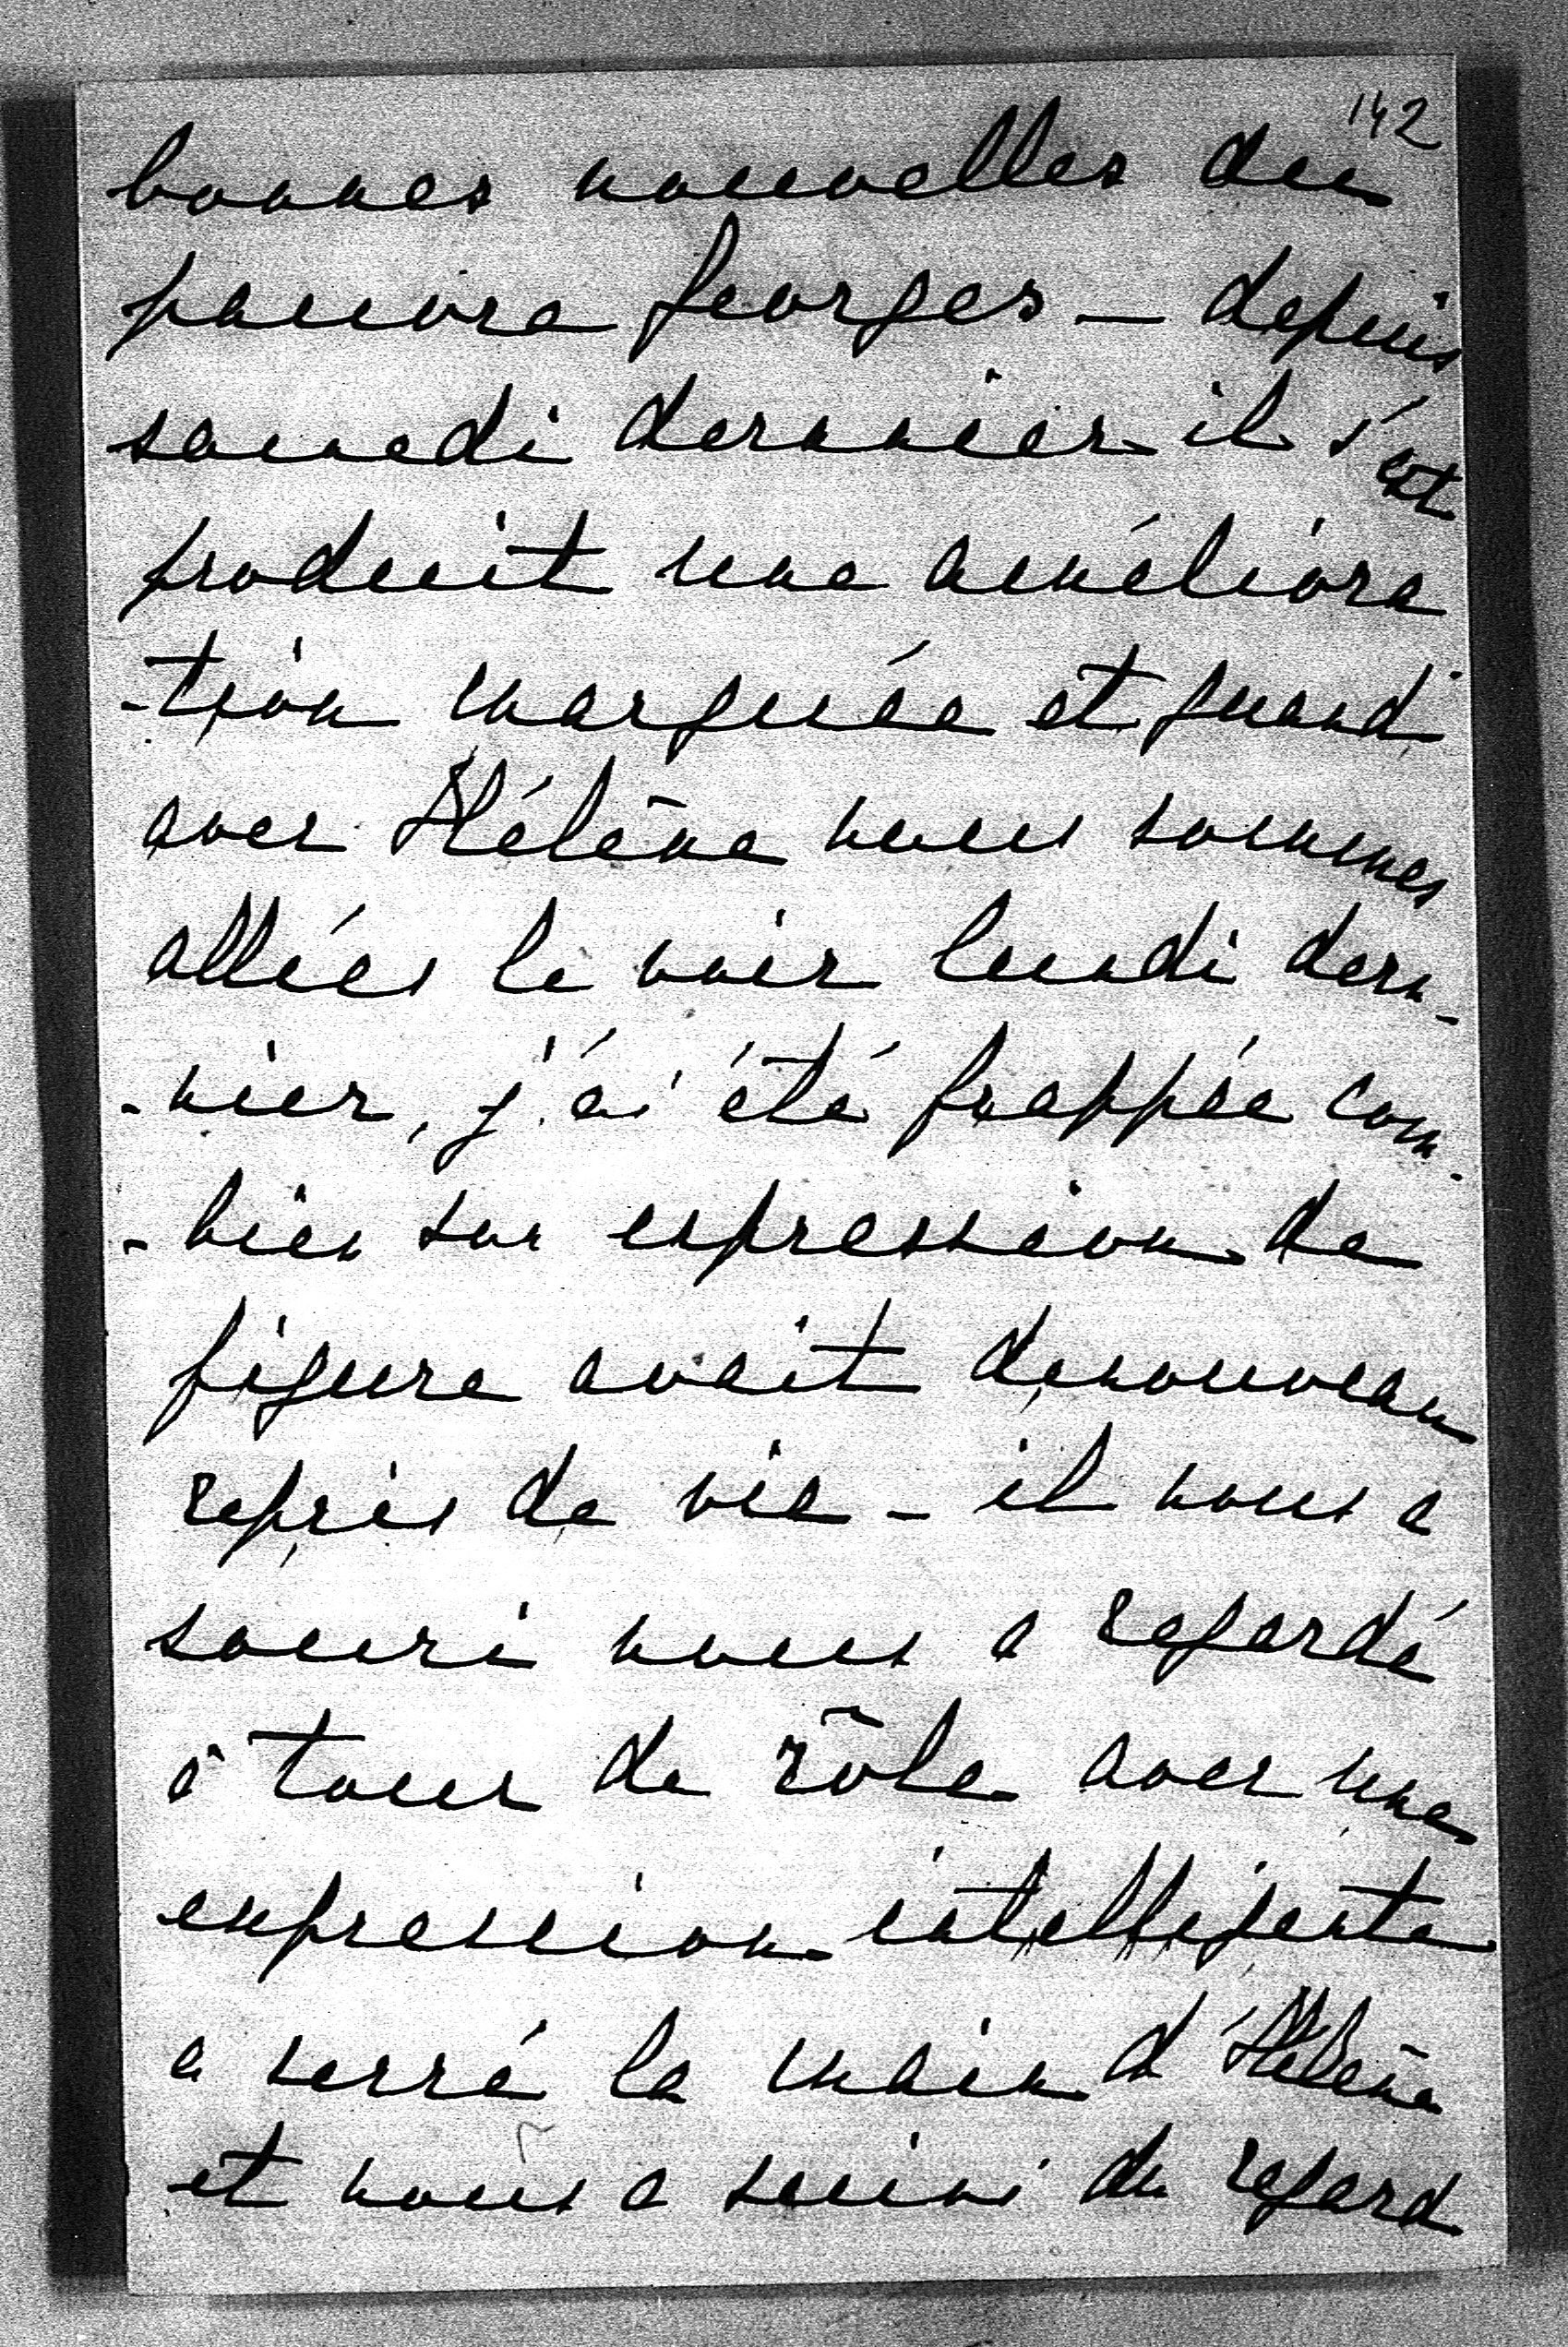 142
bonnes nouvelles du
pauvre Georges — depuis
samedi dernier il s'est
produit une améliora
-tion marquée et quand
avec Hélène nous sommes
allées le voir lundi der-
-nier, j'ai été frappée com-
-bien son expression de
figure avait de nouveau
repris de vie — il nous a
souri nous a regardé
à tour de rôle avec une
expression intelligente
a serré la main d'Hélène
et nous a suivi du regard